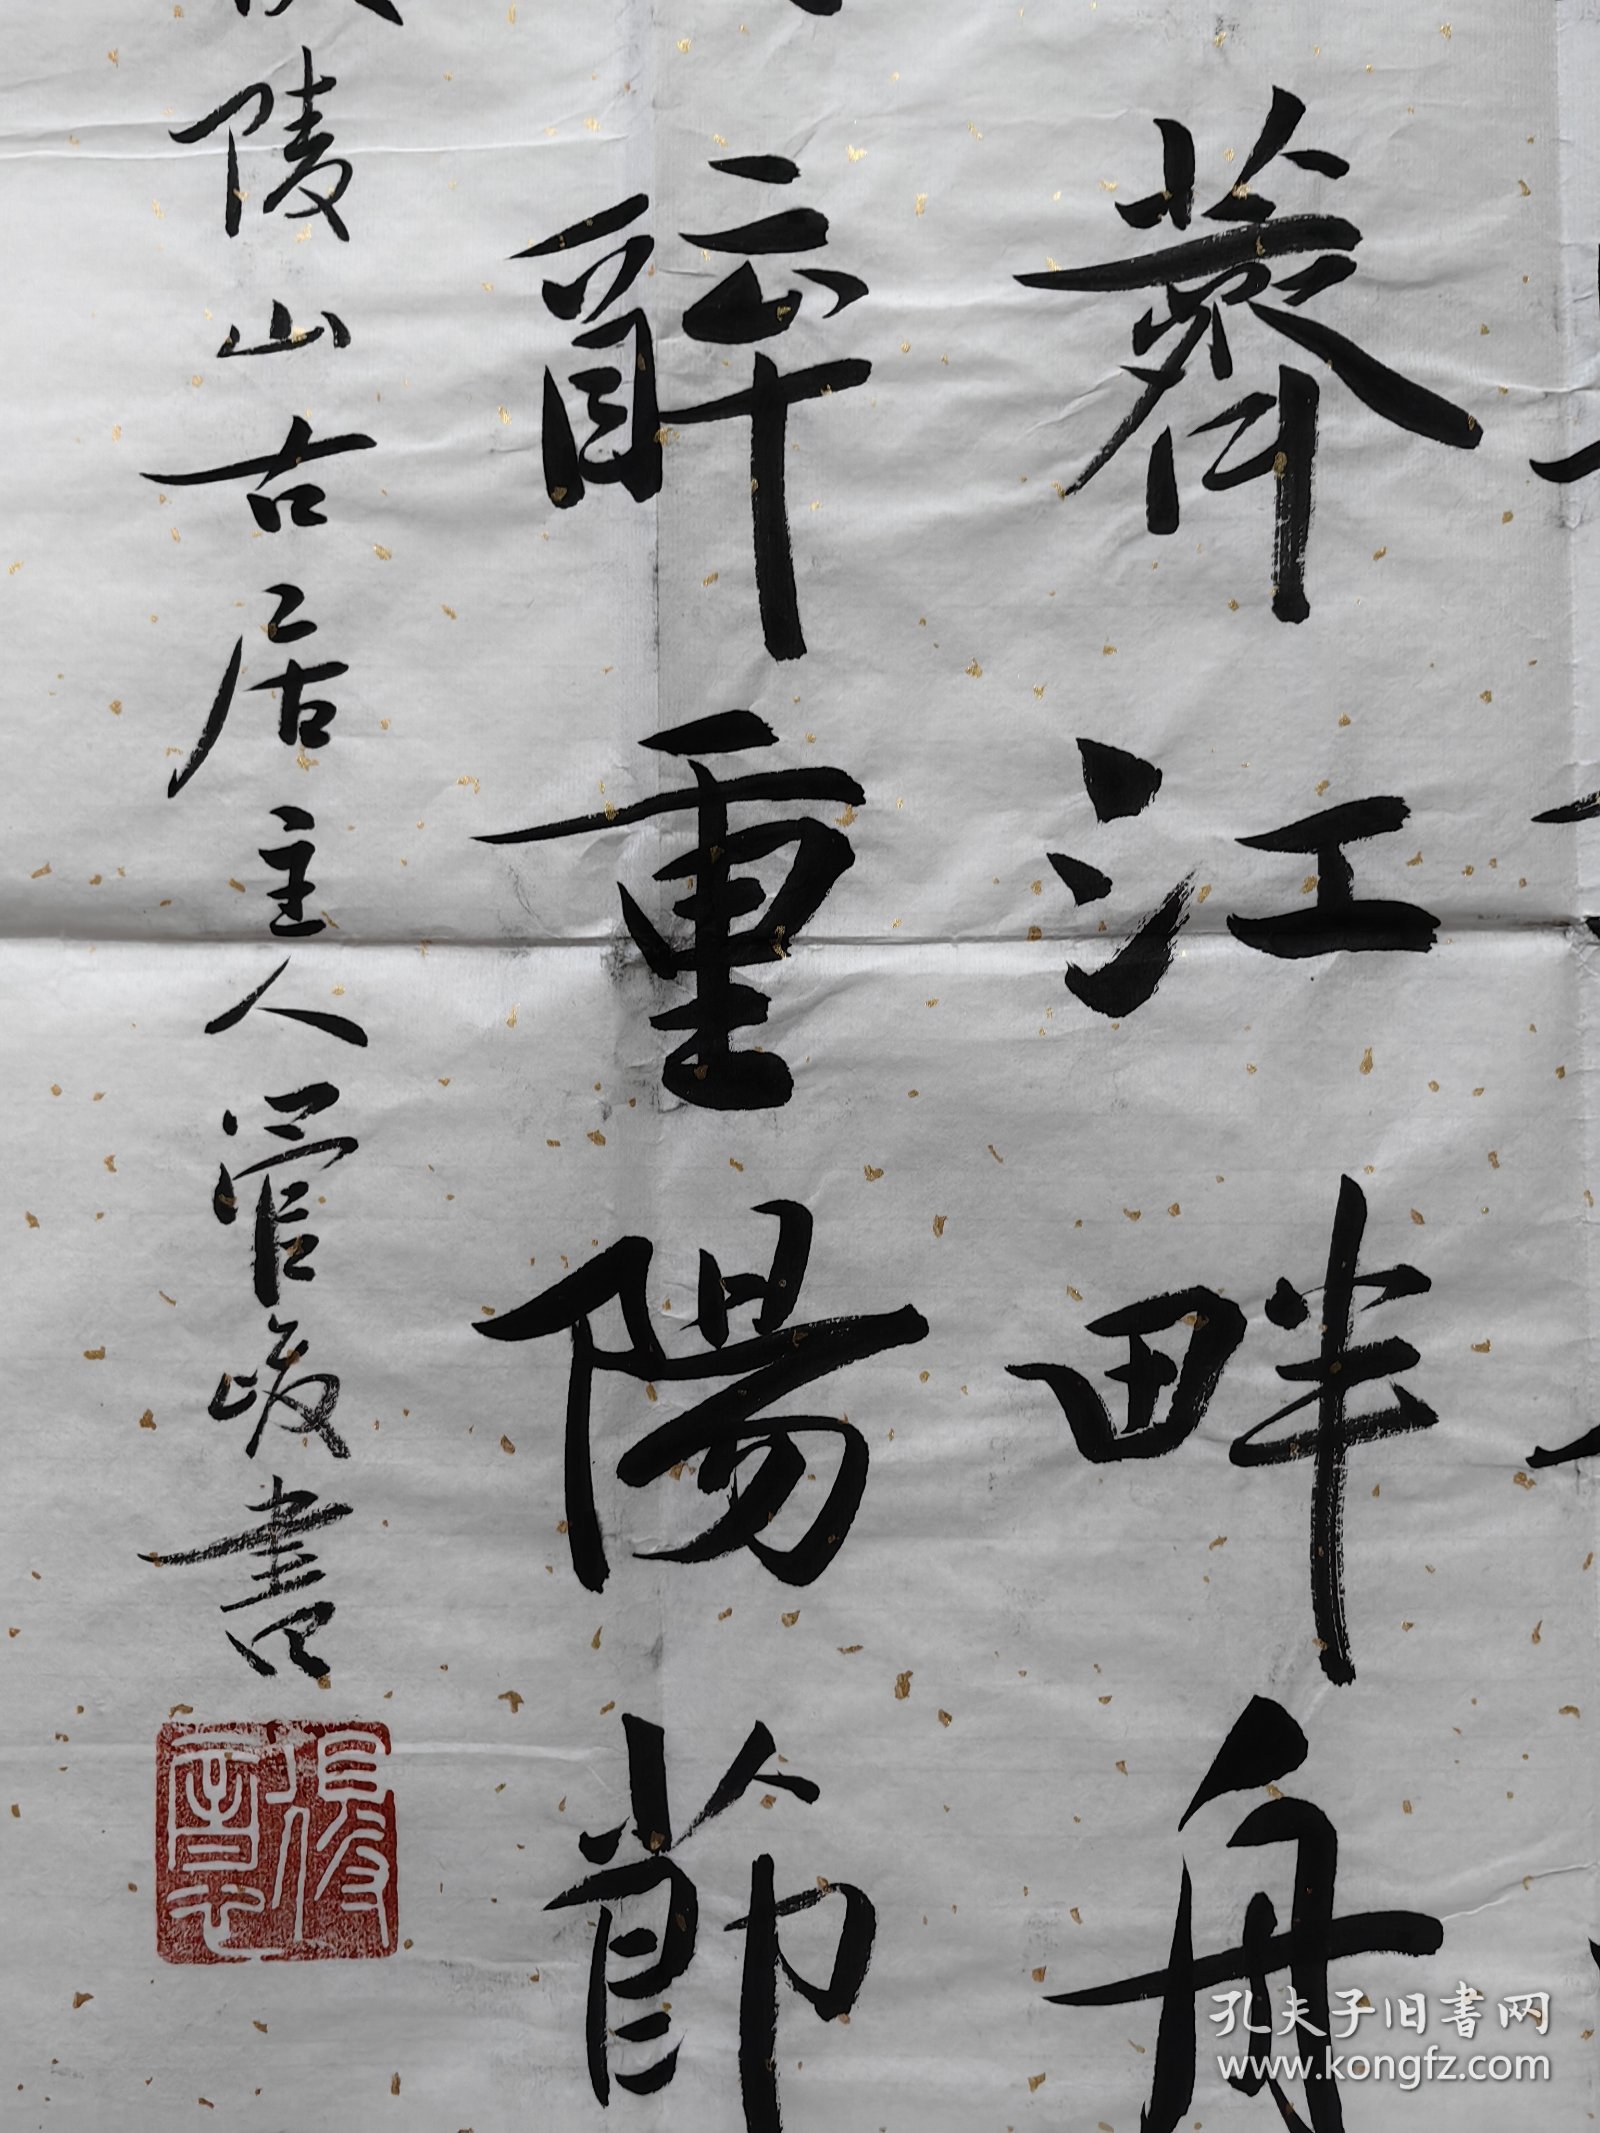 江畔舟
醉重陽節
陵山古居主人管峻書
孔夫子旧书网
www.kongfz.com